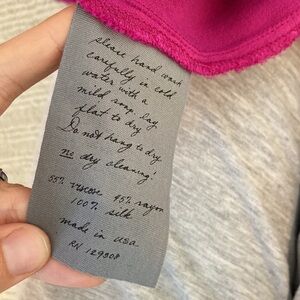 please hand wash
carefully in cold
water with a
mild soap. lay
flat to dry.
Do not hang to dry
no dry cleaning!
55% viscose 45% rayon
100% silk
made in usa
RN 129808